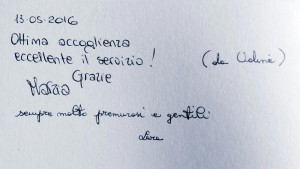 13-05-2016
Ottima accoglienza
eccellente il servizio!
Grazie
sempre molto premurosi e gentili.